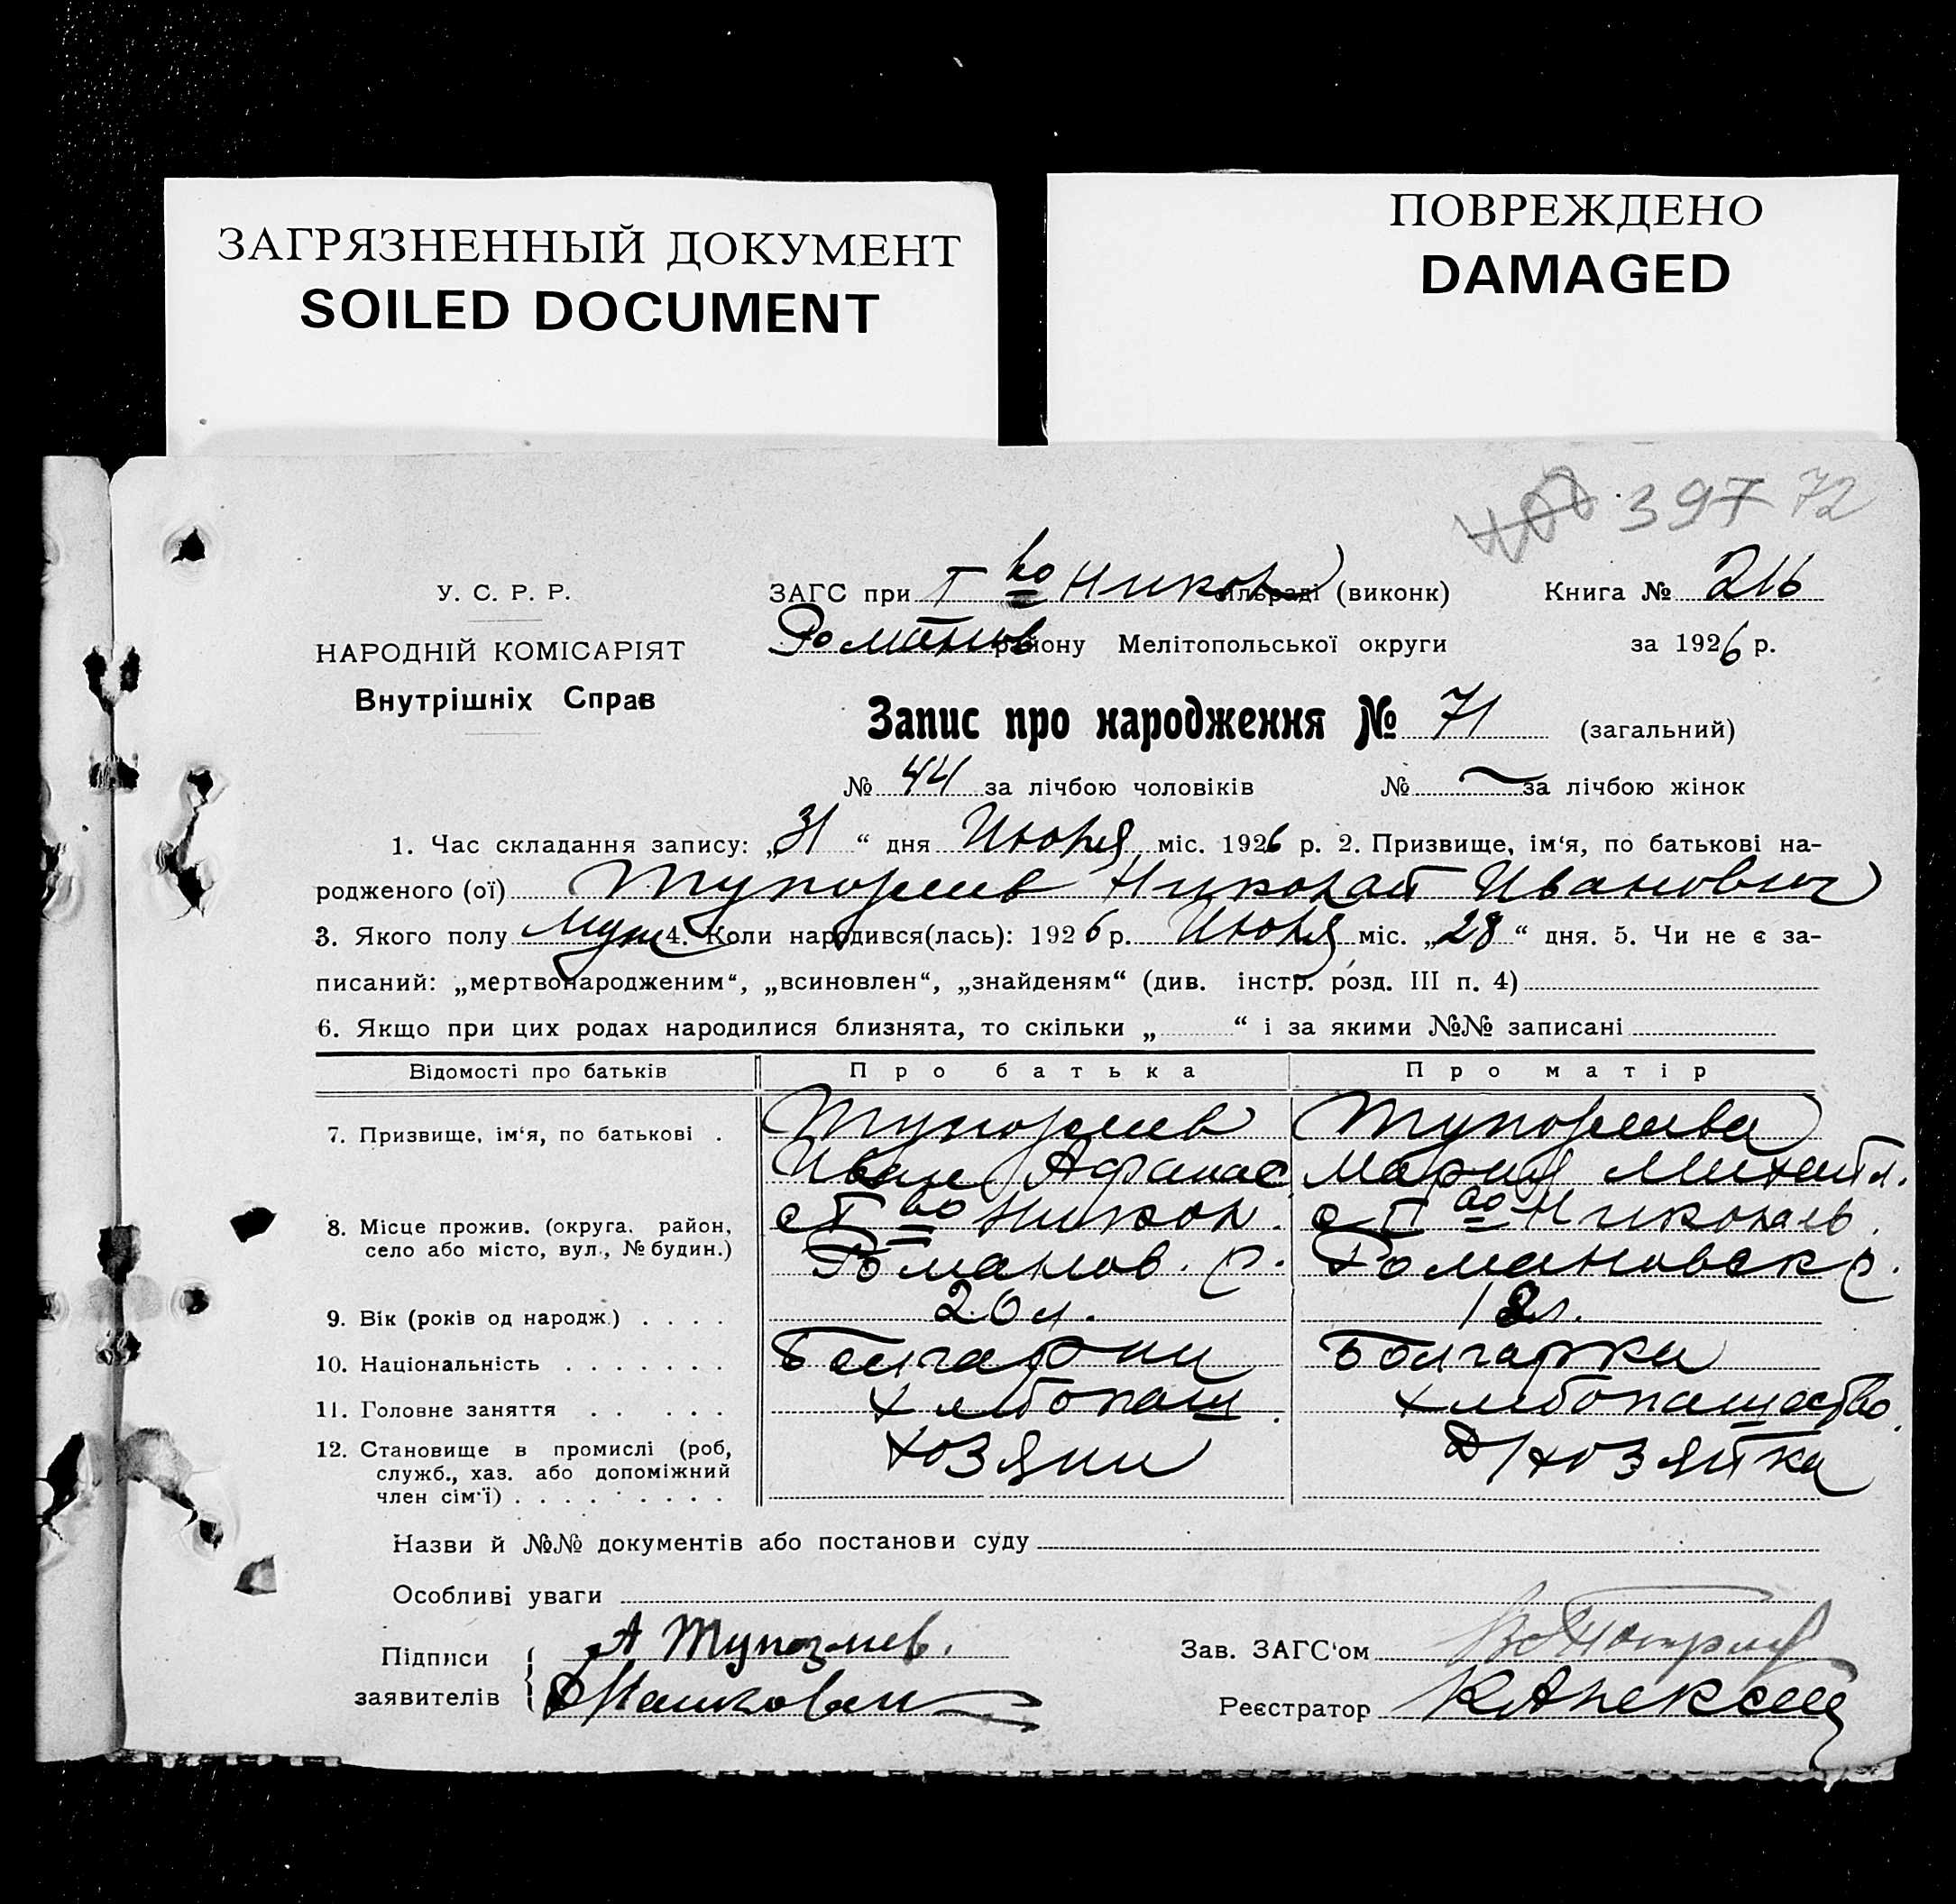 ЗАГРЯЗНЕННЫЙ ДОКУМЕНТ
SOILED DOCUMENT
ПОВРЕЖДЕНО
DAMAGED
397 72
У. С. Р. Р.
НАРОДНІЙ КОМІСАРІЯТ
Внутрішніх Справ
ЗАГС при Т во Никол сільраді (виконк) Книга № 216
Роман̄ов району Мелітопольської округи за 1926 р.
Запис про народження № 71 (загальний)
№ 44 за лічбою чоловіків № — за лічбою жінок
1. Час складання запису: „31“ дня Июля міс. 1926 р. 2. Призвище, ім‘я, по батькові на-
родженого (ої) Николай Иванович
3. Якого полу муж 4. Коли народився(лась): 1926 р. Июля міс. „28“ дня. 5. Чи не є за-
писаний: „мертвонародженим“, „всиновлен“, „знайденям“ (див. інстр. розд. III п. 4)
6. Якщо при цих родах народилися близнята, то скільки „ “ і за якими №№ записані
Відомості про батьків Про батька Про матір
7. Призвище, ім‘я, по батькові .
Иван Афанас. Мария Михайл.
8. Місце прожив. (округа, район, с Т во Никол. с Т во Николаев.
село або місто, вул., № будин.) Романов. р. Романовск р.
9. Вік (років од народж.) . . . . 20 л. 18 л.
10. Національність . . . . . . . Болгарин Болгарка
11. Головне заняття . . . . . хлебопаш. хлебопашество
12. Становище в промислі (роб, хозяин Д/хозяйка
служб., хаз. або допоміжний
член сім‘ї) . . . . . . . . .
Назви й №№ документів або постанови суду
Особливі уваги
Підписи А Зав. ЗАГС‘ом
заявителів Реєстратор